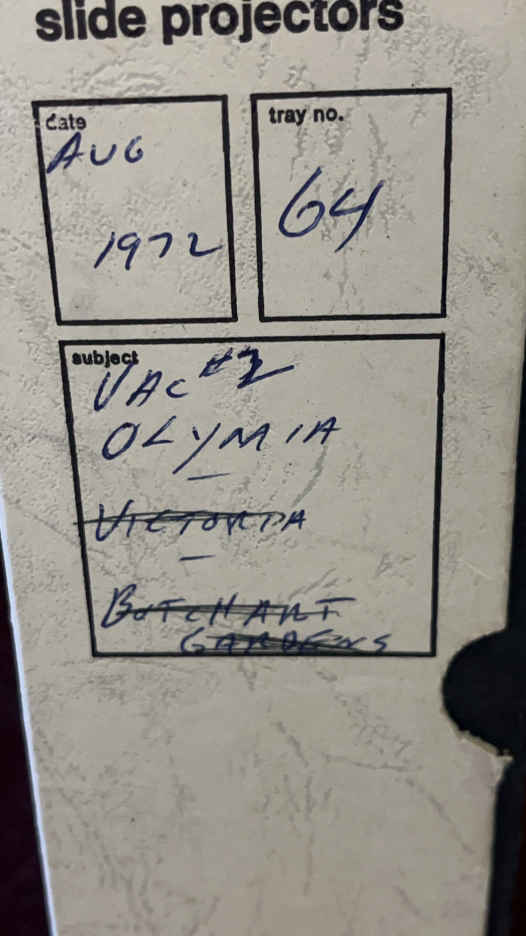 slide projectors
date
AUG
1972
tray no.
64
subject
VAC #2
OLYMIA
—
VICTORIA
—
BUTCHART
GARDENS